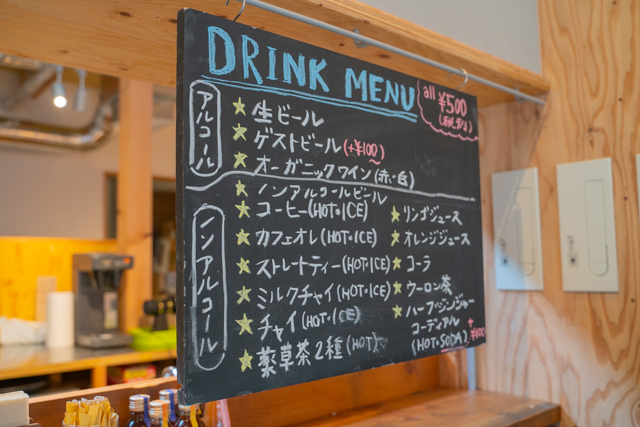 DRINK MENU
all ¥500
アルコール
★ 生ビール
★ ゲストビール (+¥100)
★ オーガニックワイン (赤・白)
ノンアルコール
★ ノンアルコールビール
★ コーヒー (HOT・ICE)
★ カフェオレ (HOT・ICE)
★ ストレートティー (HOT・ICE)
★ ミルクチャイ (HOT・ICE)
★ チャイ (HOT・ICE)
★ 薬草茶2種 (HOT)
★ リンゴジュース
★ オレンジジュース
★ コーラ
★ ウーロン茶
★ ハーブジンジャー
コーディアル
(HOT・SODA)
+¥100